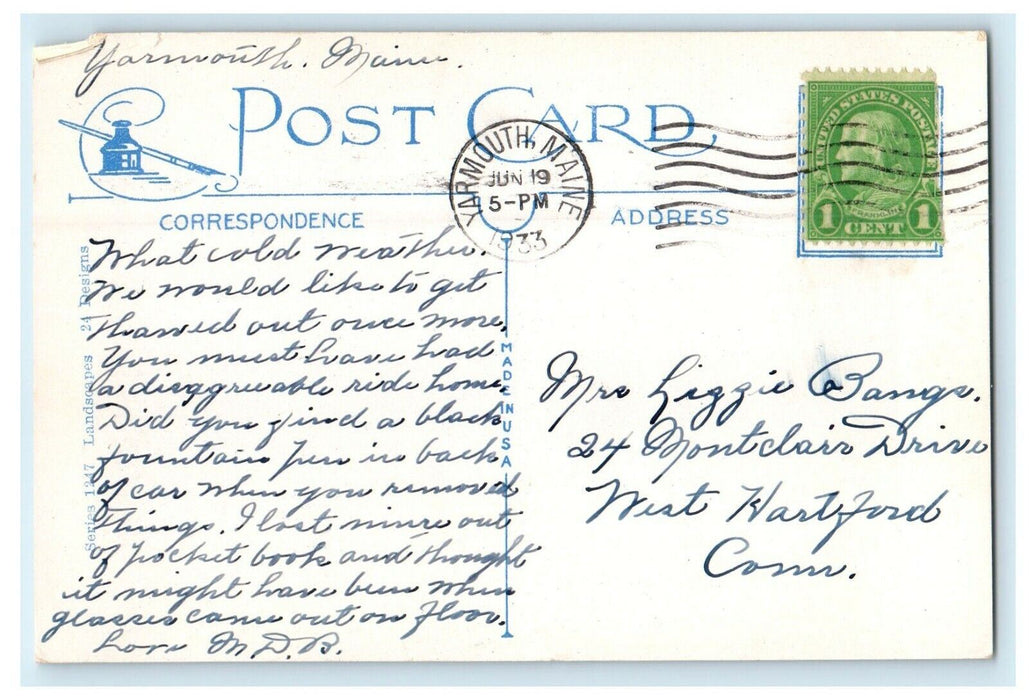 Yarmouth. Maine.
POST CARD
YARMOUTH, MAINE
JUN 19
5-PM
1933
UNITED STATES POSTAGE
FRANKLIN
1 CENT 1
CORRESPONDENCE
ADDRESS
What cold weather.
We would like to get
thawed out once more.
You must have had
a disagreeable ride home.
Did you find a black
fountain pen in back
of car when you removed
things. I lost mine out
of pocket book and thought
it might have been when
glasses came out on floor.
Love M.D.B.
Series 1247 Landscapes 24 Designs
MADE IN USA
Mrs Lizzie Bangs.
24 Montclair Drive
West Hartford
Conn.